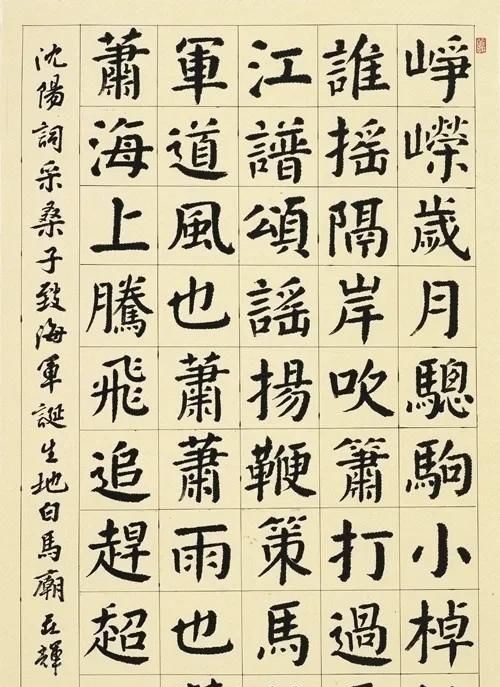 崢嶸歲月驄駒小棹
誰摇隔岸吹簫打過
江譜頌謡揚鞭策馬
軍道風也蕭蕭雨也
蕭海上騰飛追趕超
沈陽詞采桑子致海軍誕生地白馬廟